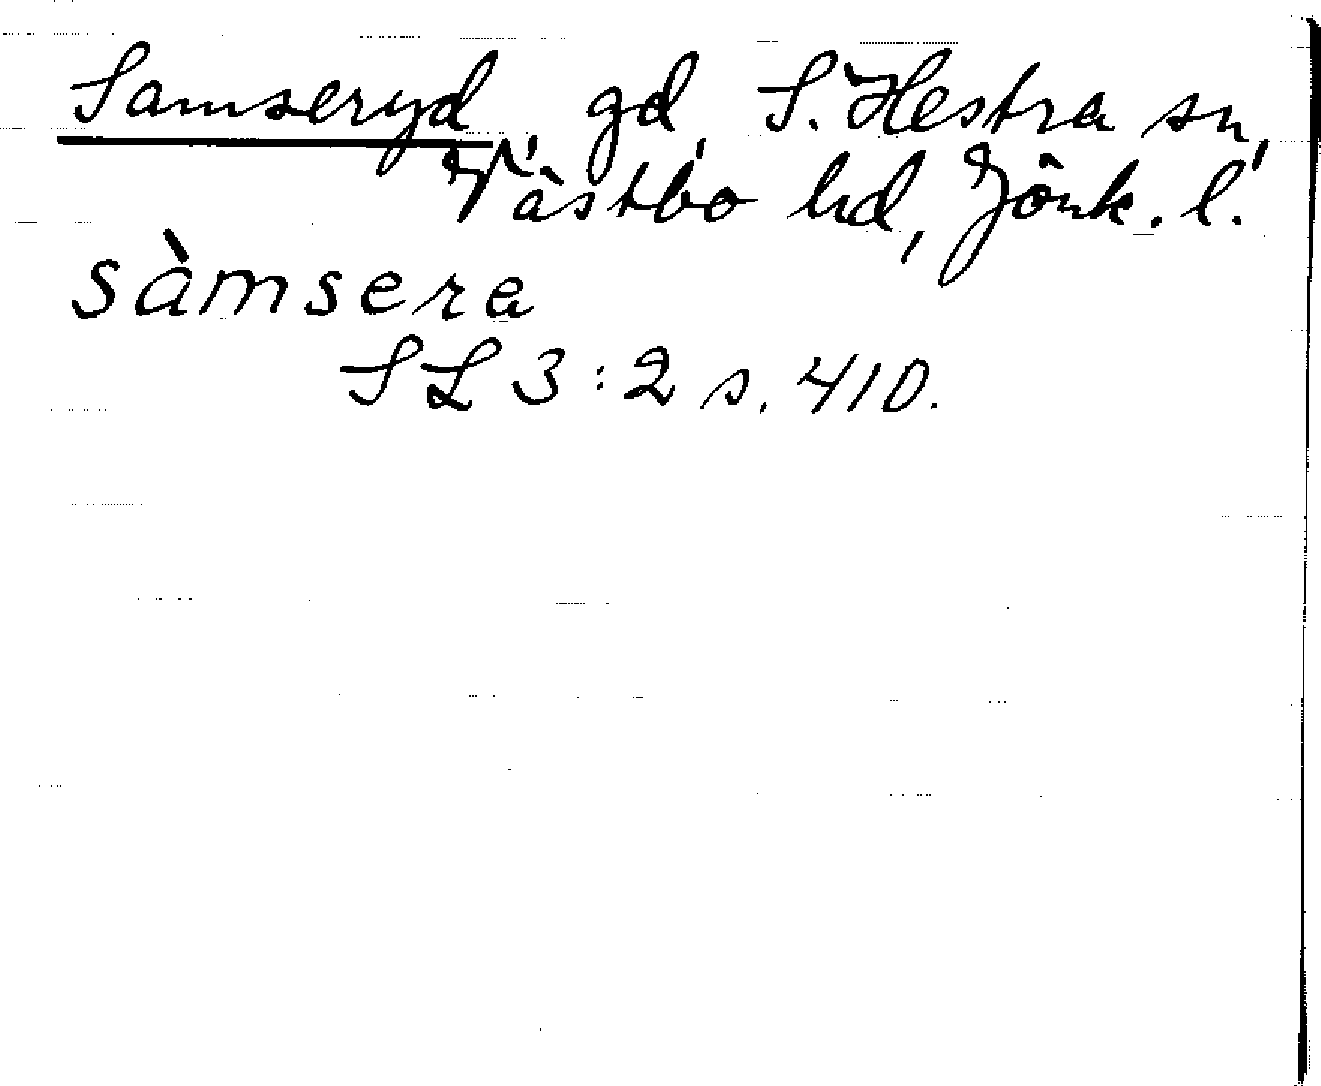 Samseryd, gd, S. Hestra sn,
Västbo hd, Jönk. l.
sàmsera
SL 3:2 s. 410.